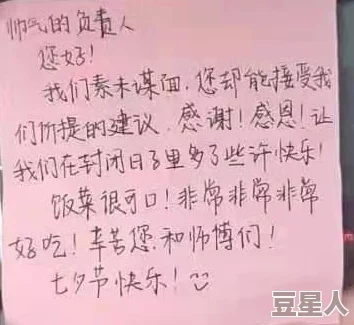 帅气的负责人
您好!
我们素未谋面,您却能接受我
们所提的建议,感谢!感恩!让
我们在封闭日子里多了些许快乐!
饭菜很可口!非常非常非常
好吃!辛苦您和师博们!
七夕节快乐!
豆星人